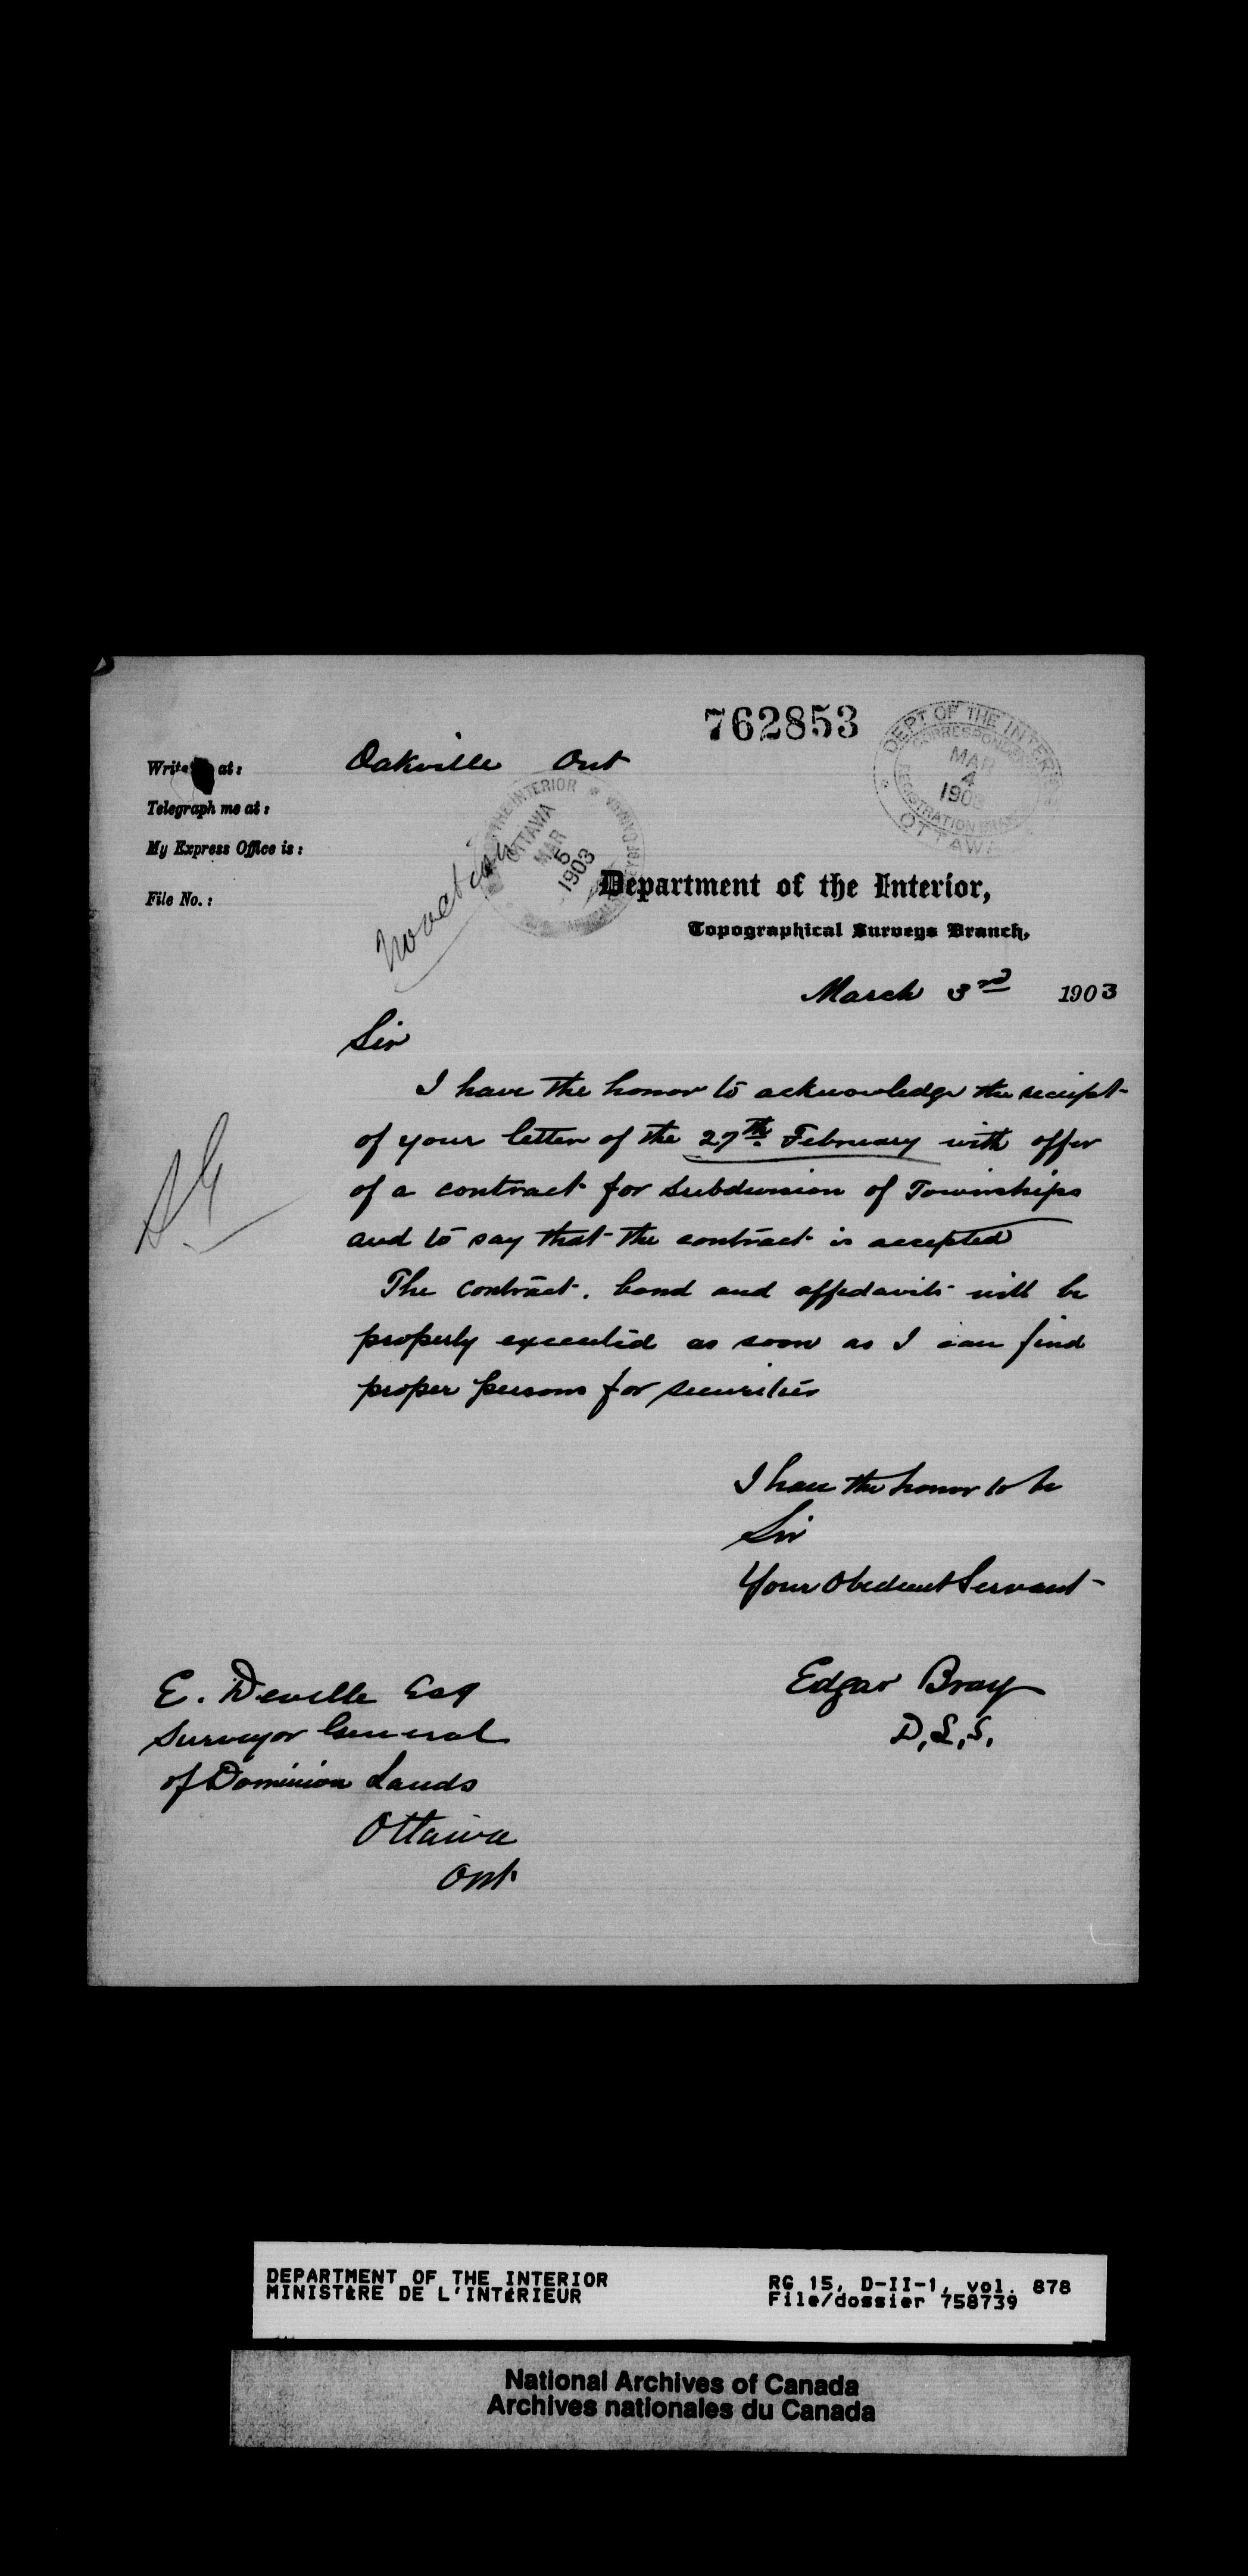 762853
DEPT OF THE INTERIOR
CORRESPONDENCE
MAR
4
1903
REGISTRATION BRANCH
OTTAWA
Write me at: Oakville Ont
Telegraph me at:
My Express Office is:
File No.:
THE INTERIOR
OTTAWA
MAR
5
1903
No action
Department of the Interior,
Topographical Surveys Branch,
March 3rd 1903
Sir
I have the honor to acknowledge the receipt
of your letter of the 27th. February with offer
of a contract for subdivision of Townships
and to say that the contract is accepted
The contract. bond and affidavits will be
properly executed as soon as I can find
proper persons for securities
SG
I have the honor to be
Sir
Your Obedient Servant
Edgar Bray
D,L,S,
E. Deville Esq
Surveyor General
of Dominion Lands
Ottawa
Ont
DEPARTMENT OF THE INTERIOR
MINISTÈRE DE L'INTÉRIEUR
RG 15, D-II-1, vol. 878
File/dossier 758739
National Archives of Canada
Archives nationales du Canada